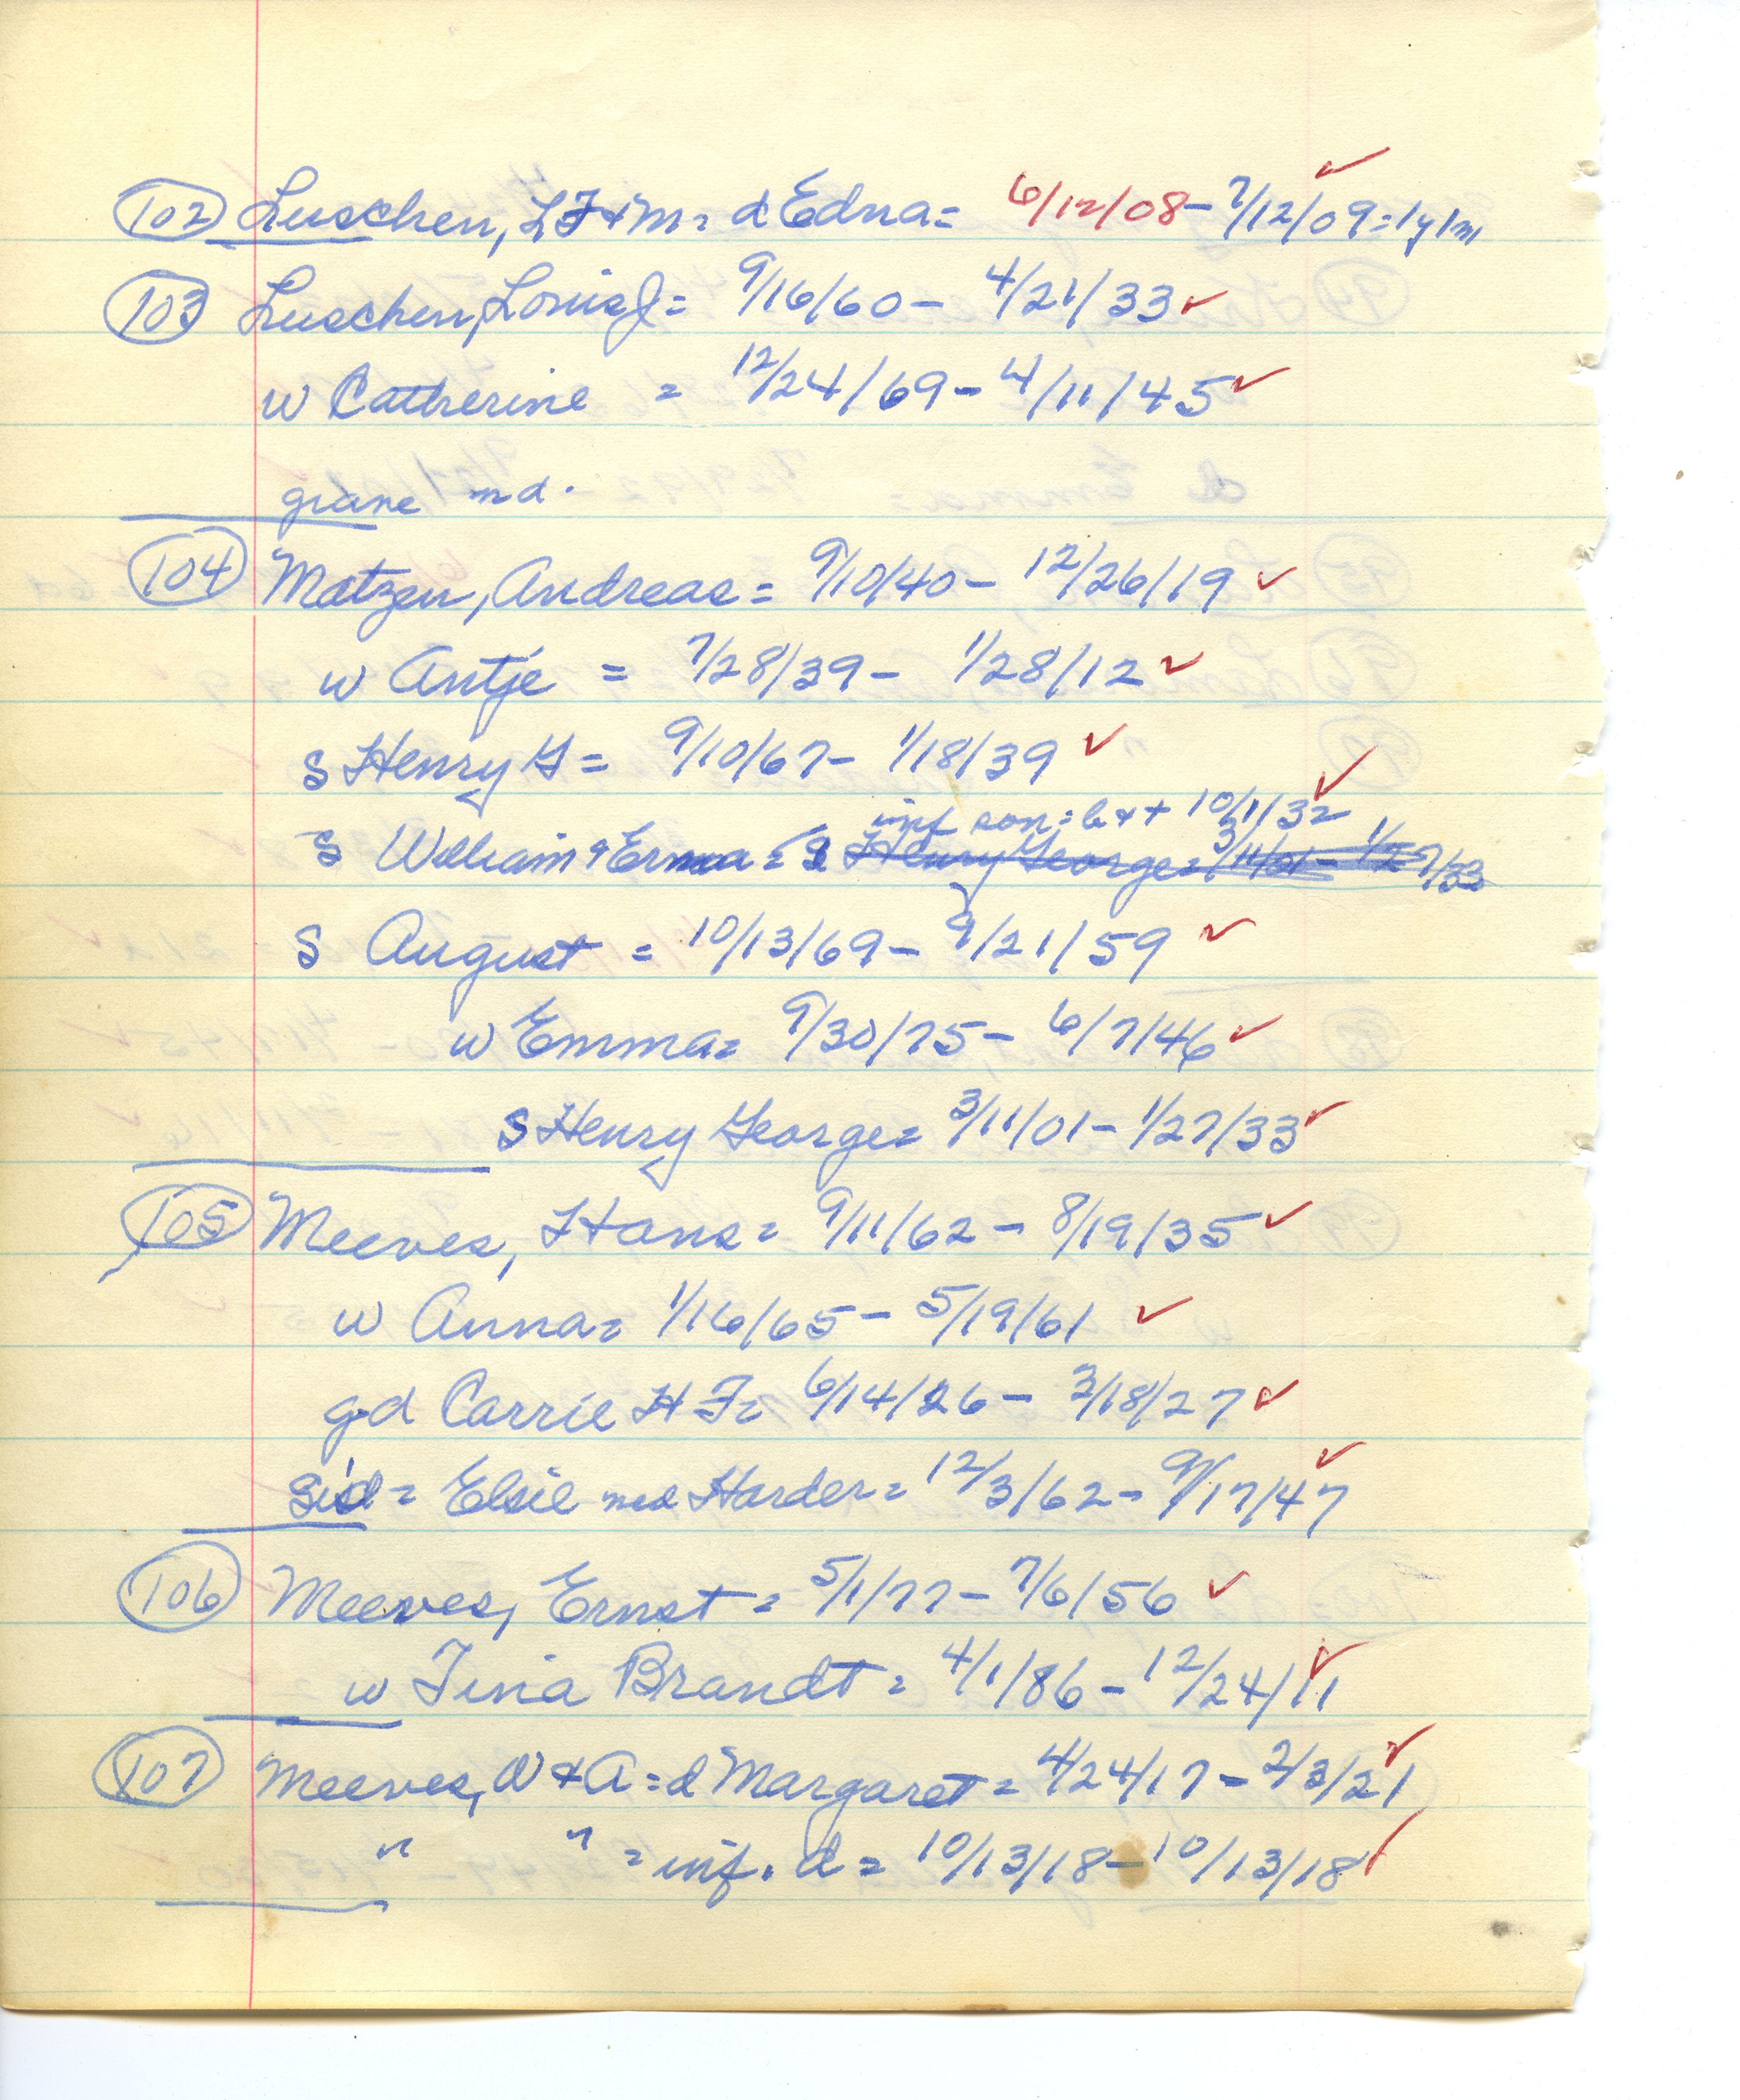 102 Luschen, L F & M = d Edna = 6/12/08 - 7/12/09 = 1y 1m
103 Luschen, Louis J = 9/16/60 - 4/21/33 ✓
w Catherine = 12/24/69 - 4/11/45 ✓
grave md.
104 Matzen, Andreas = 9/10/40 - 12/26/19 ✓
w Antje = 7/28/39 - 1/28/12 ✓
s Henry G = 9/10/67 - 1/18/39 ✓
inf son = b & + 10/1/32 ✓
s William & Erma = s Henry George = 3/11/01 - 1/27/33
s August = 10/13/69 - 9/21/59 ✓
w Emma = 9/30/75 - 6/7/46 ✓
s Henry George = 3/11/01 - 1/27/33 ✓
105 Meeves, Hans = 9/11/62 - 8/19/35 ✓
w Anna = 1/16/65 - 5/19/61 ✓
gd Carrie H F = 6/14/26 - 3/18/27 ✓
sid = Elsie md Harder = 12/3/62 - 9/17/47 ✓
106 Meeves, Ernst = 5/1/77 - 7/6/56 ✓
w Tina Brandt = 4/1/86 - 12/24/11 ✓
107 Meeves, W & A = d Margaret = 4/24/17 - 2/3/21 ✓
" " = inf. d = 10/13/18 - 10/13/18 ✓